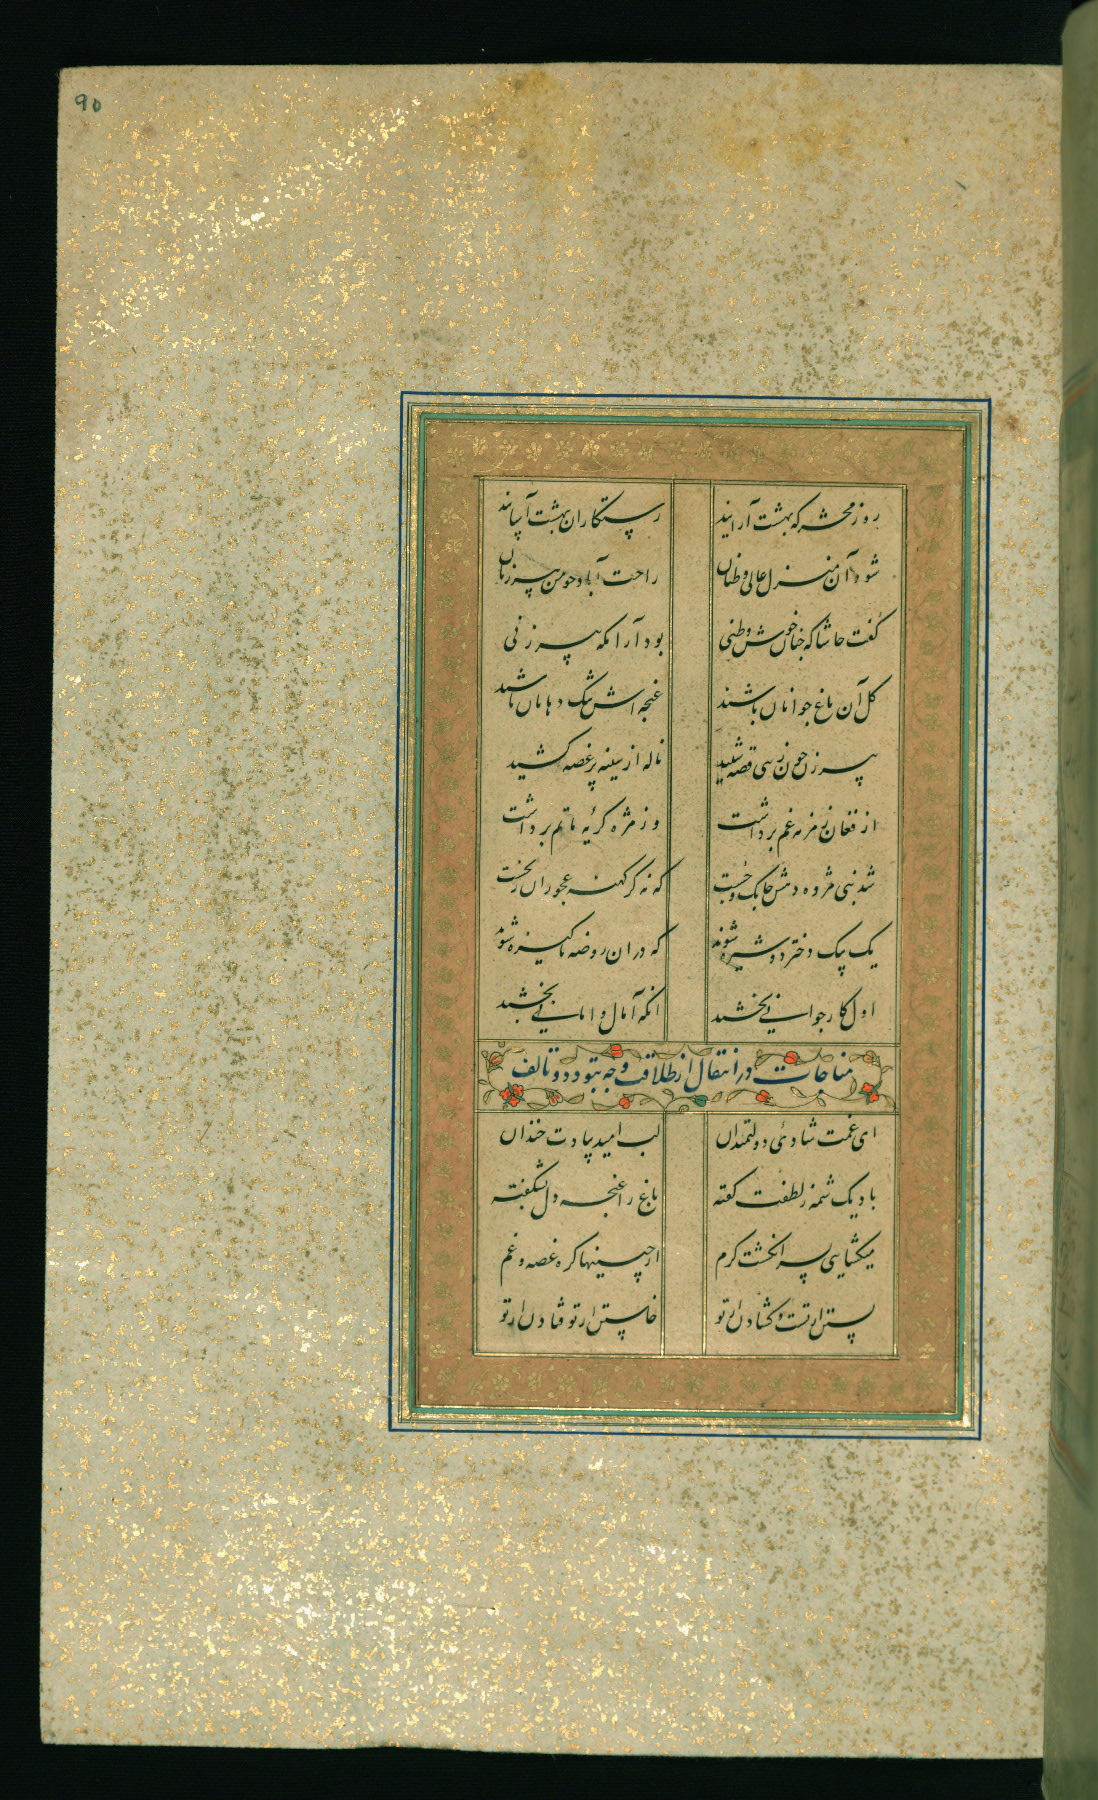 90
روز محشر که بهشت آرایند رستکاران بهشت آسایند
شود آن منزل عالی وطنان راحت آباد چو من پیرزنان
کفت حاشا که چنان خوش وطنی بود آرامکه پیرزنی
کل آن باغ جوانان باشند غنچه اش تنک دهانان باشند
پیرزن چون ز نبی قصه شنید ناله از سینه پر غصه کشید
از فغان زمزمه غم برداشت وز مژه کریه ماتم برداشت
شد نبی مژده دهش چابک و چست که نه کر کهنه عجوزان ز نخست
یک بیک دختر دوشیزه شوند که در ان روضه پاکیزه شوند
اول کار جوانی بخشند انکه آمال و امانی بخشند
مناجات در انتقال از طلاقت وجه بتودد و تالف
ای غمت شادئ دولتمندان لب امید بیادت خندان
باد یک شمه ز لطفت کفته باغ را غنچه دل بشکفته
میکشایی بسر انکشت کرم از جبینها کره غصه و غم
بستن از تست و کشادن از تو خاستن از تو فتادن از تو